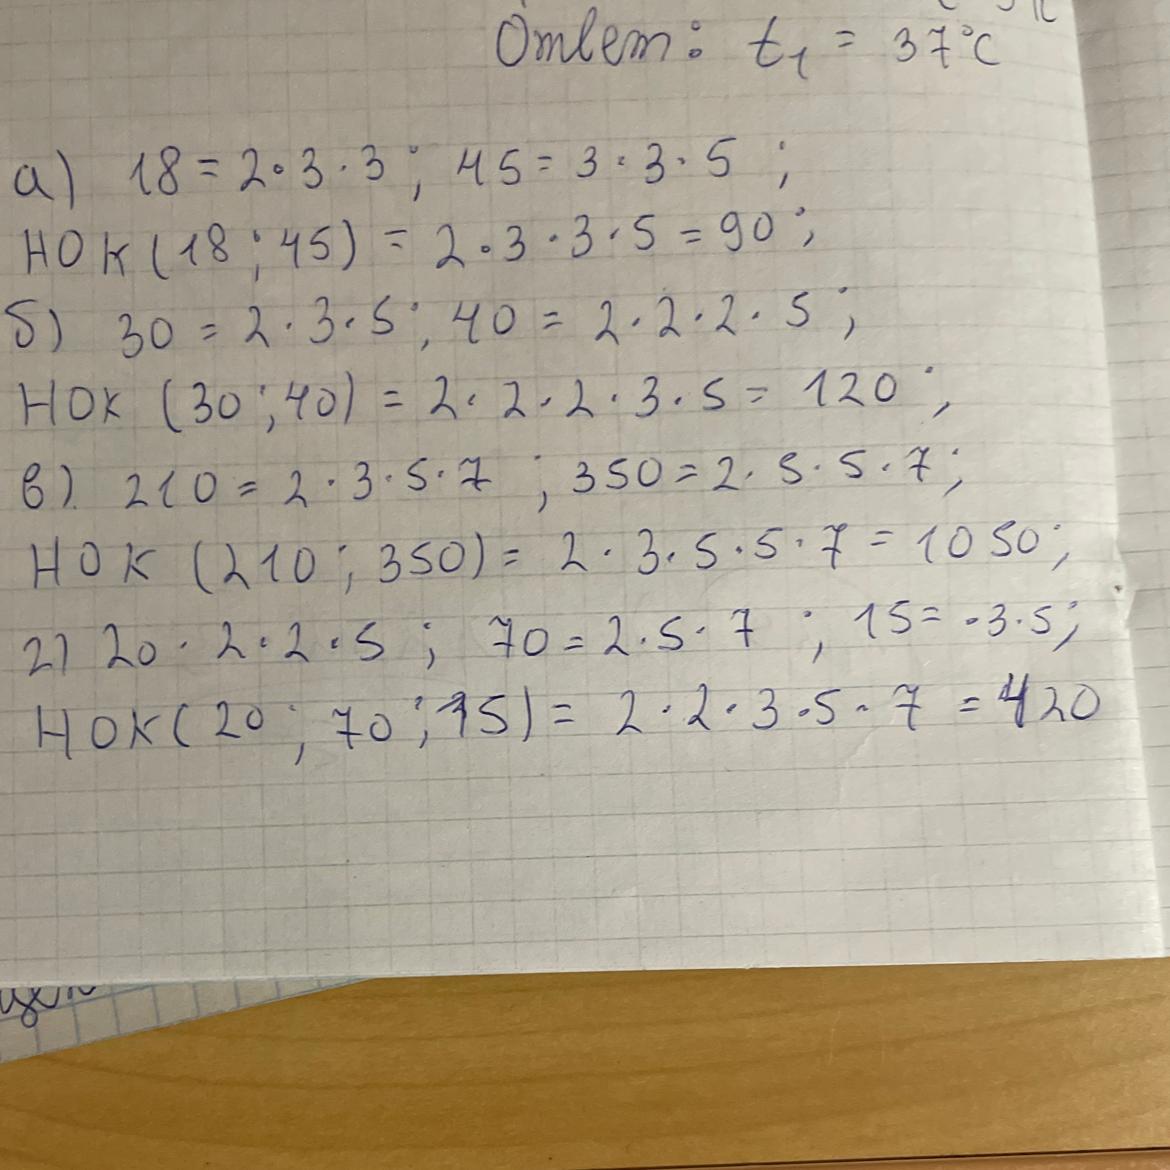 Ответ: t₁ = 37°C
а) 18 = 2·3·3; 45 = 3·3·5;
НОК (18; 45) = 2·3·3·5 = 90;
б) 30 = 2·3·5; 40 = 2·2·2·5;
НОК (30; 40) = 2·2·2·3·5 = 120;
в) 210 = 2·3·5·7; 350 = 2·5·5·7;
НОК (210; 350) = 2·3·5·5·7 = 1050;
г) 20 · 2·2·5; 70 = 2·5·7; 15 = ·3·5;
НОК (20; 70; 15) = 2·2·3·5·7 = 420